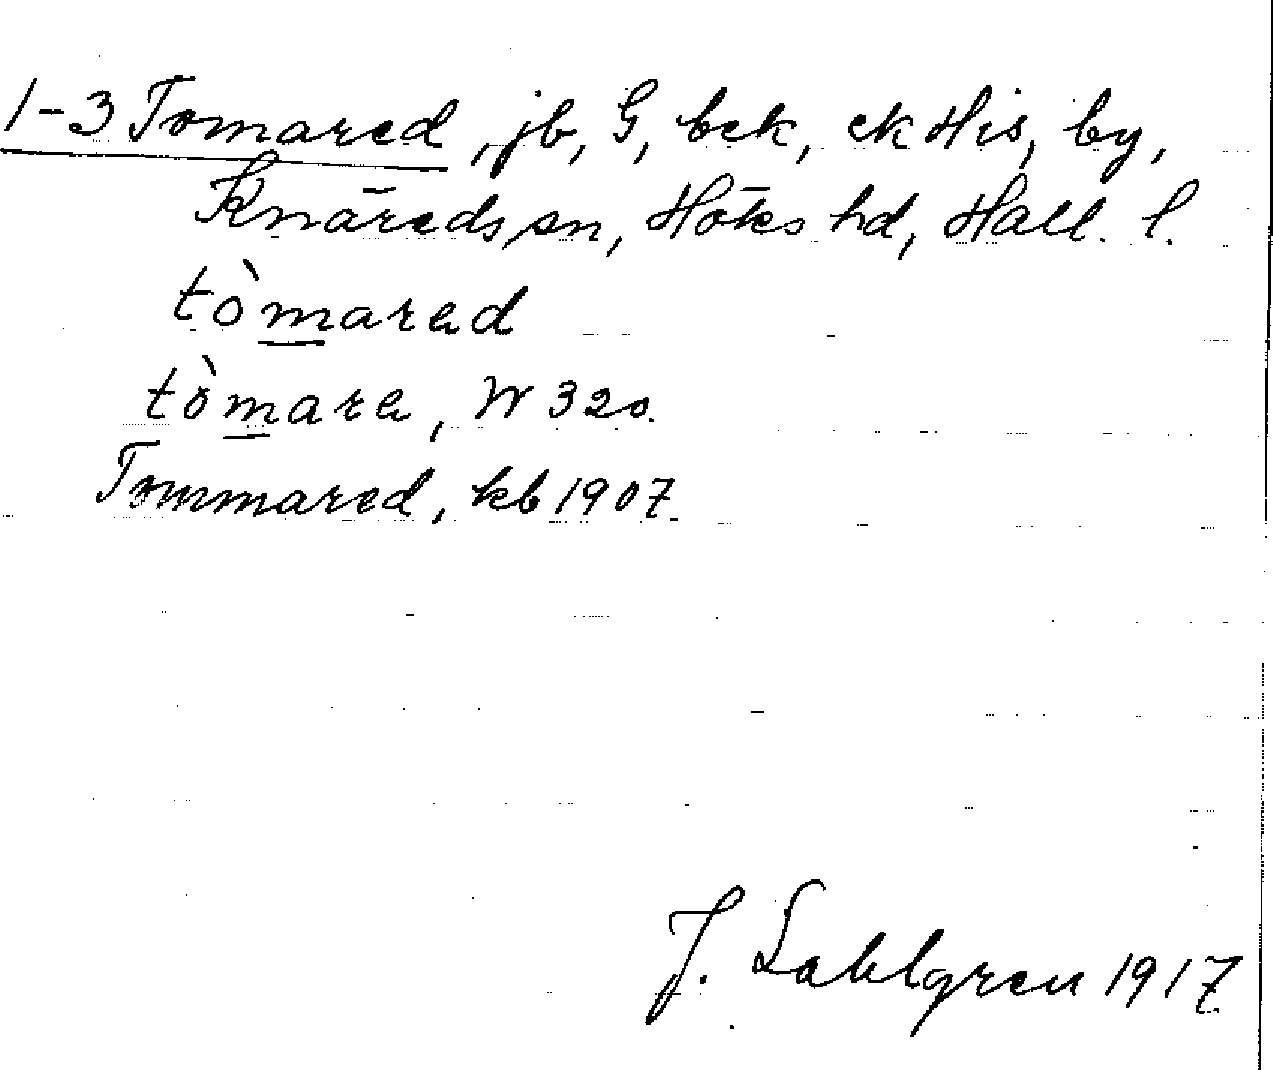 1-3 Tomared, jb, G, bek, ek His, by,
Knäreds sn, Höks hd, Hall. l.
tòmarad
tòmara, W 320.
Tommared, kb 1907.
J. Sahlgren 1917.